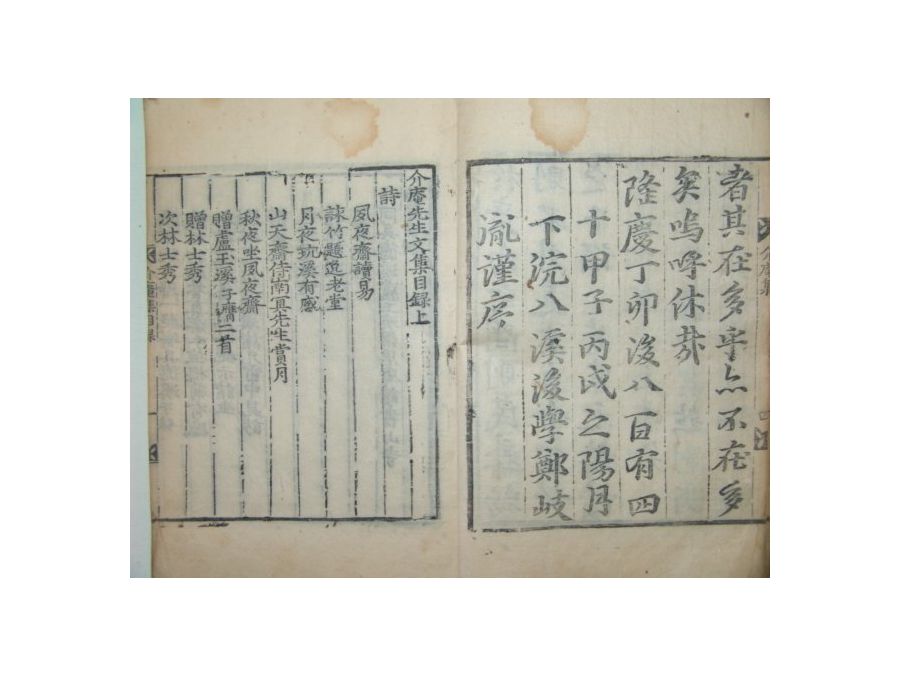 者其在多乎亦不在多
矣嗚呼休哉
隆慶丁卯後八百有四
十甲子丙戌之陽月
下浣八溪後學鄭岐
胤謹序
介庵先生文集目録上
詩
夙夜齋讀易
詠竹題追老堂
月夜玩溪有感
山天齋侍南冥先生賞月
秋夜坐夙夜齋
贈盧玉溪子膺二首
贈林士秀
次林士秀
介庵集目録